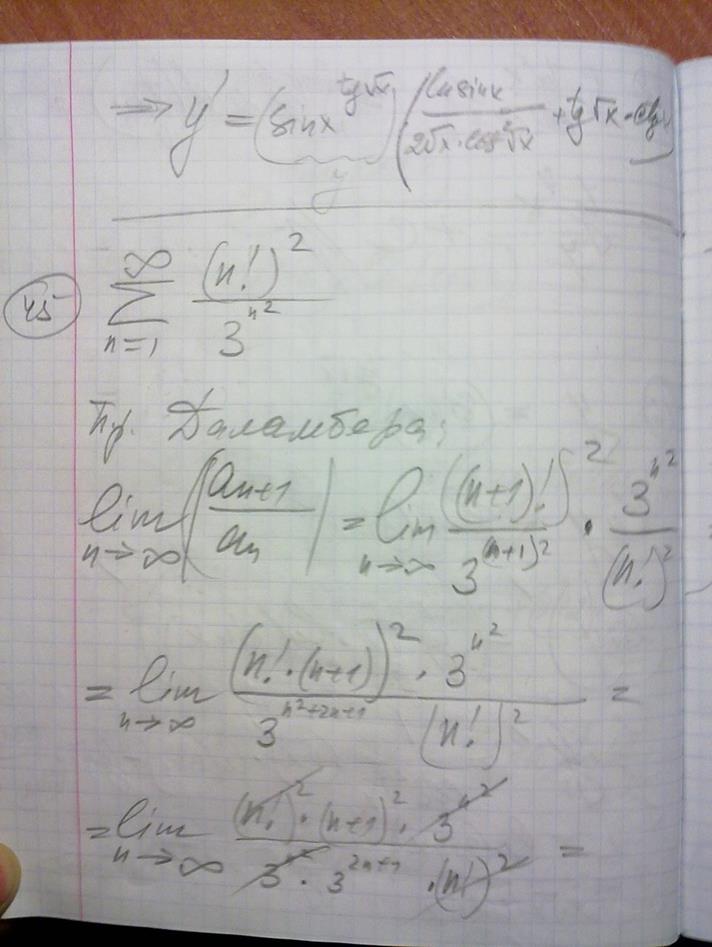 ⇒ y' = (sinx^tg√x) (lnsinx / 2√x·cos²√x + tg√x · ctgx)
y
45 ∑ n=1 ∞ (n!)² / 3^n²
Пр. Даламбера:
lim n→∞ |an+1 / an| = lim n→∞ ((n+1)!)² / 3^(n+1)² · 3^n² / (n!)² =
= lim n→∞ (n!·(n+1))² · 3^n² / 3^n²+2n+1 (n!)² =
= lim n→∞ (n!)² · (n+1)² · 3^n² / 3^n² · 3^2n+1 · (n!)² =